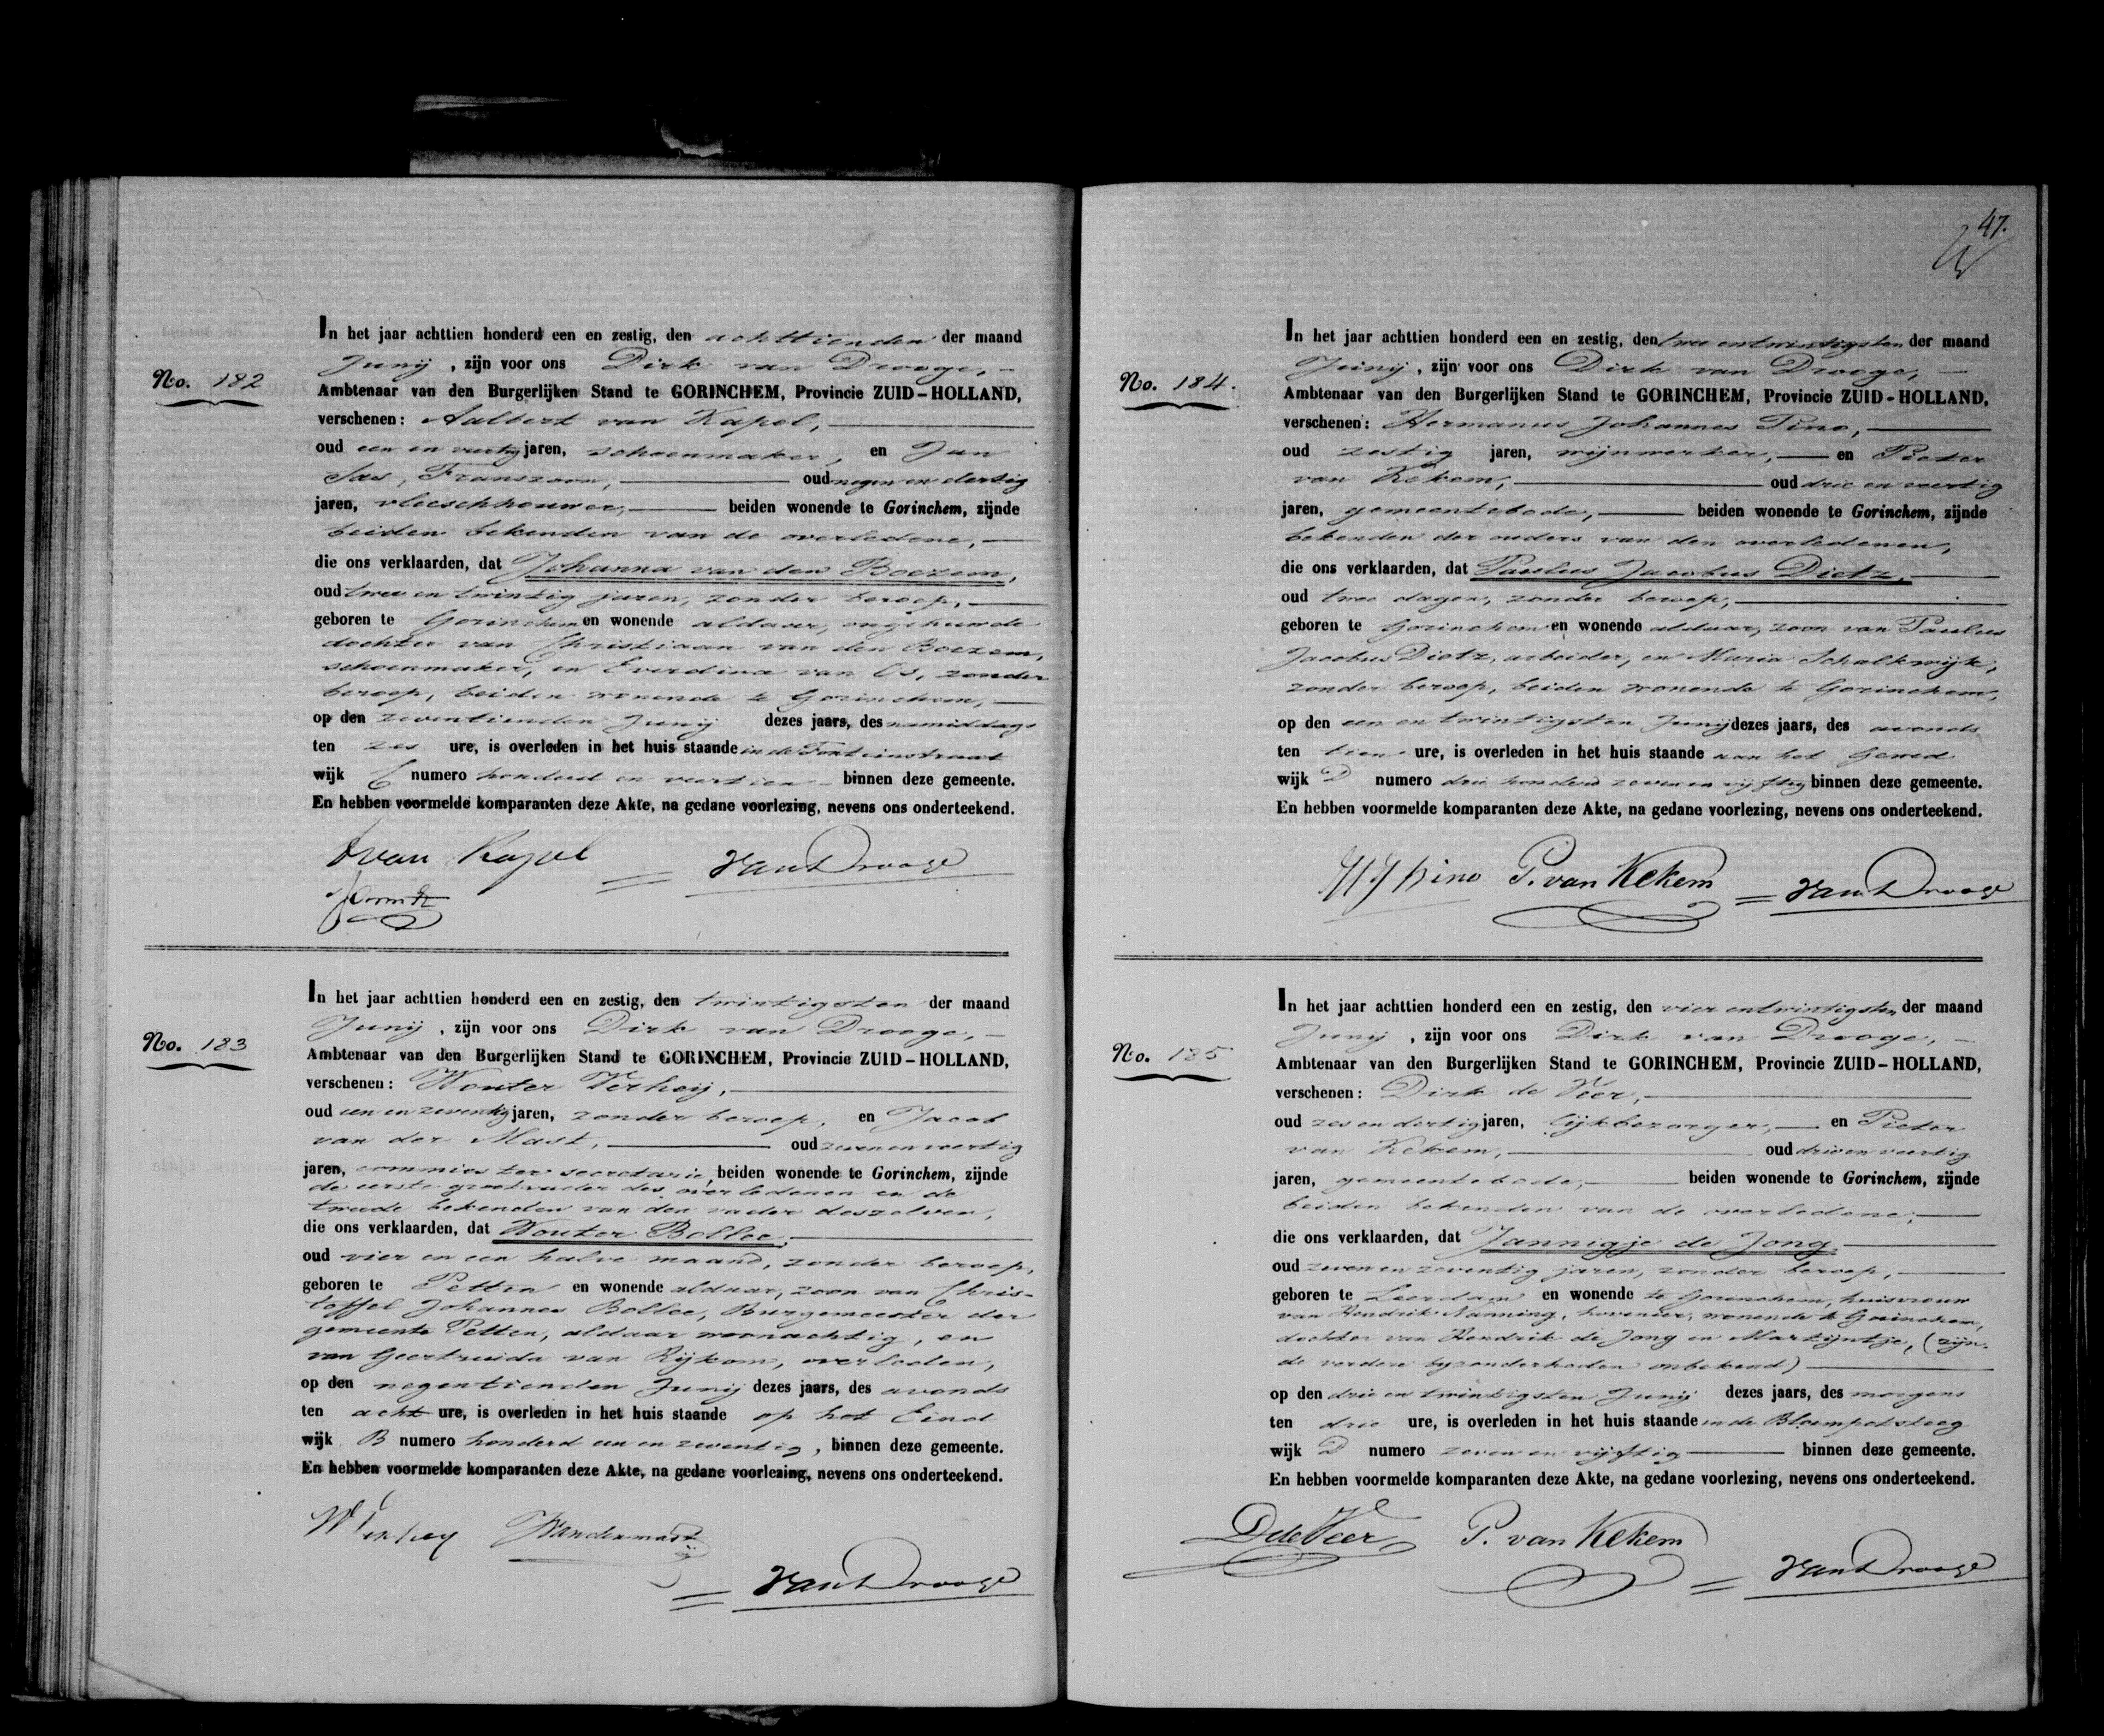 No. 182
In het jaar achttien honderd een en zestig, den achttienden der maand
Junij, zijn voor ons Dirk van Drooge,
Ambtenaar van den Burgerlijken Stand te GORINCHEM, Provincie ZUID-HOLLAND,
verschenen: Aalbert van Kapel,
oud een en veertig jaren, schoenmaker, en Jan
Sas, Franszoon, oud negen en dertig
jaren, vleeschhouwer, beiden wonende te Gorinchem, zijnde
beiden bekenden van de overledene,
die ons verklaarden, dat Johanna van den Boezem,
oud twee en twintig jaren, zonder beroep,
geboren te Gorinchem en wonende aldaar, ongehuwde
dochter van Christiaan van den Boezem,
schoenmaker, en Everdina van Os, zonder
beroep, beiden wonende te Gorinchem,
op den zeventienden Junij dezes jaars, des namiddags
ten zes ure, is overleden in het huis staande in de Fonteinstraat
wijk C numero honderd en veertien binnen deze gemeente.
En hebben voormelde komparanten deze Akte, na gedane voorlezing, nevens ons onderteekend.
van Kapel VanDrooge
No. 183
In het jaar achttien honderd een en zestig, den twintigsten der maand
Junij, zijn voor ons Dirk van Drooge,
Ambtenaar van den Burgerlijken Stand te GORINCHEM, Provincie ZUID-HOLLAND,
verschenen: Wouter Verheij,
oud een en zeventig jaren, zonder beroep, en Jacob
van der Mast, oud zeven en veertig
jaren, commies ter secretarie, beiden wonende te Gorinchem, zijnde
de eerste grootvader des overledenen en de
tweede bekenden van den vader deszelven,
die ons verklaarden, dat Wouter Bollee,
oud vier en een halve maand, zonder beroep,
geboren te Petten en wonende aldaar, zoon van Chris-
toffel Johannes Bollee, Burgemeester der
gemeente Petten, aldaar woonachtig, en
van Geertruida van Rijkom, overleden,
op den negentienden Junij dezes jaars, des avonds
ten acht ure, is overleden in het huis staande op het Eind
wijk B numero honderd een en zeventig, binnen deze gemeente.
En hebben voormelde komparanten deze Akte, na gedane voorlezing, nevens ons onderteekend.
W Verheij JVandermast
VanDrooge
47.
No. 184.
In het jaar achttien honderd een en zestig, den twee entwintigsten der maand
Junij, zijn voor ons Dirk van Drooge,
Ambtenaar van den Burgerlijken Stand te GORINCHEM, Provincie ZUID-HOLLAND,
verschenen: Hermanus Johannes Pino,
oud zestig jaren, wijnwerker, en Pieter
van Kekem, oud drie en veertig
jaren, gemeentebode, beiden wonende te Gorinchem, zijnde
bekenden der ouders van den overledenen,
die ons verklaarden, dat Paulus Jacobus Dietz,
oud twee dagen, zonder beroep,
geboren te Gorinchem en wonende aldaar, zoon van Paulus
Jacobus Dietz, arbeider, en Maria Schalkwijk,
zonder beroep, beiden wonende te Gorinchem,
op den een en twintigsten Junij dezes jaars, des avonds
ten tien ure, is overleden in het huis staande aan het
wijk D numero drie honderd zeven en vijftig binnen deze gemeente.
En hebben voormelde komparanten deze Akte, na gedane voorlezing, nevens ons onderteekend.
HJ Pino P. van Kekem VanDrooge
No. 185
In het jaar achttien honderd een en zestig, den vier entwintigsten der maand
Junij, zijn voor ons Dirk van Drooge,
Ambtenaar van den Burgerlijken Stand te GORINCHEM, Provincie ZUID-HOLLAND,
verschenen: Dirk de Veer,
oud zes en dertig jaren, lijkbezorger, en Pieter
van Kekem, oud drie en veertig
jaren, gemeentebode, beiden wonende te Gorinchem, zijnde
beiden bekenden van de overledene,
die ons verklaarden, dat Jannigje de Jong
oud zeven en zeventig jaren, zonder beroep,
geboren te Leerdam en wonende te Gorinchem, huisvrouw
van Hendrik Nanning, hovenier, wonende te Gorinchem,
dochter van Hendrik de Jong en Martijntje, (zijn-
de verdere byzonderheden onbekend)
op den drie en twintigsten Junij dezes jaars, des morgens
ten drie ure, is overleden in het huis staande in de Bloempotsteeg
wijk D numero zeven en vijftig binnen deze gemeente.
En hebben voormelde komparanten deze Akte, na gedane voorlezing, nevens ons onderteekend.
DdeVeer P. van Kekem VanDrooge